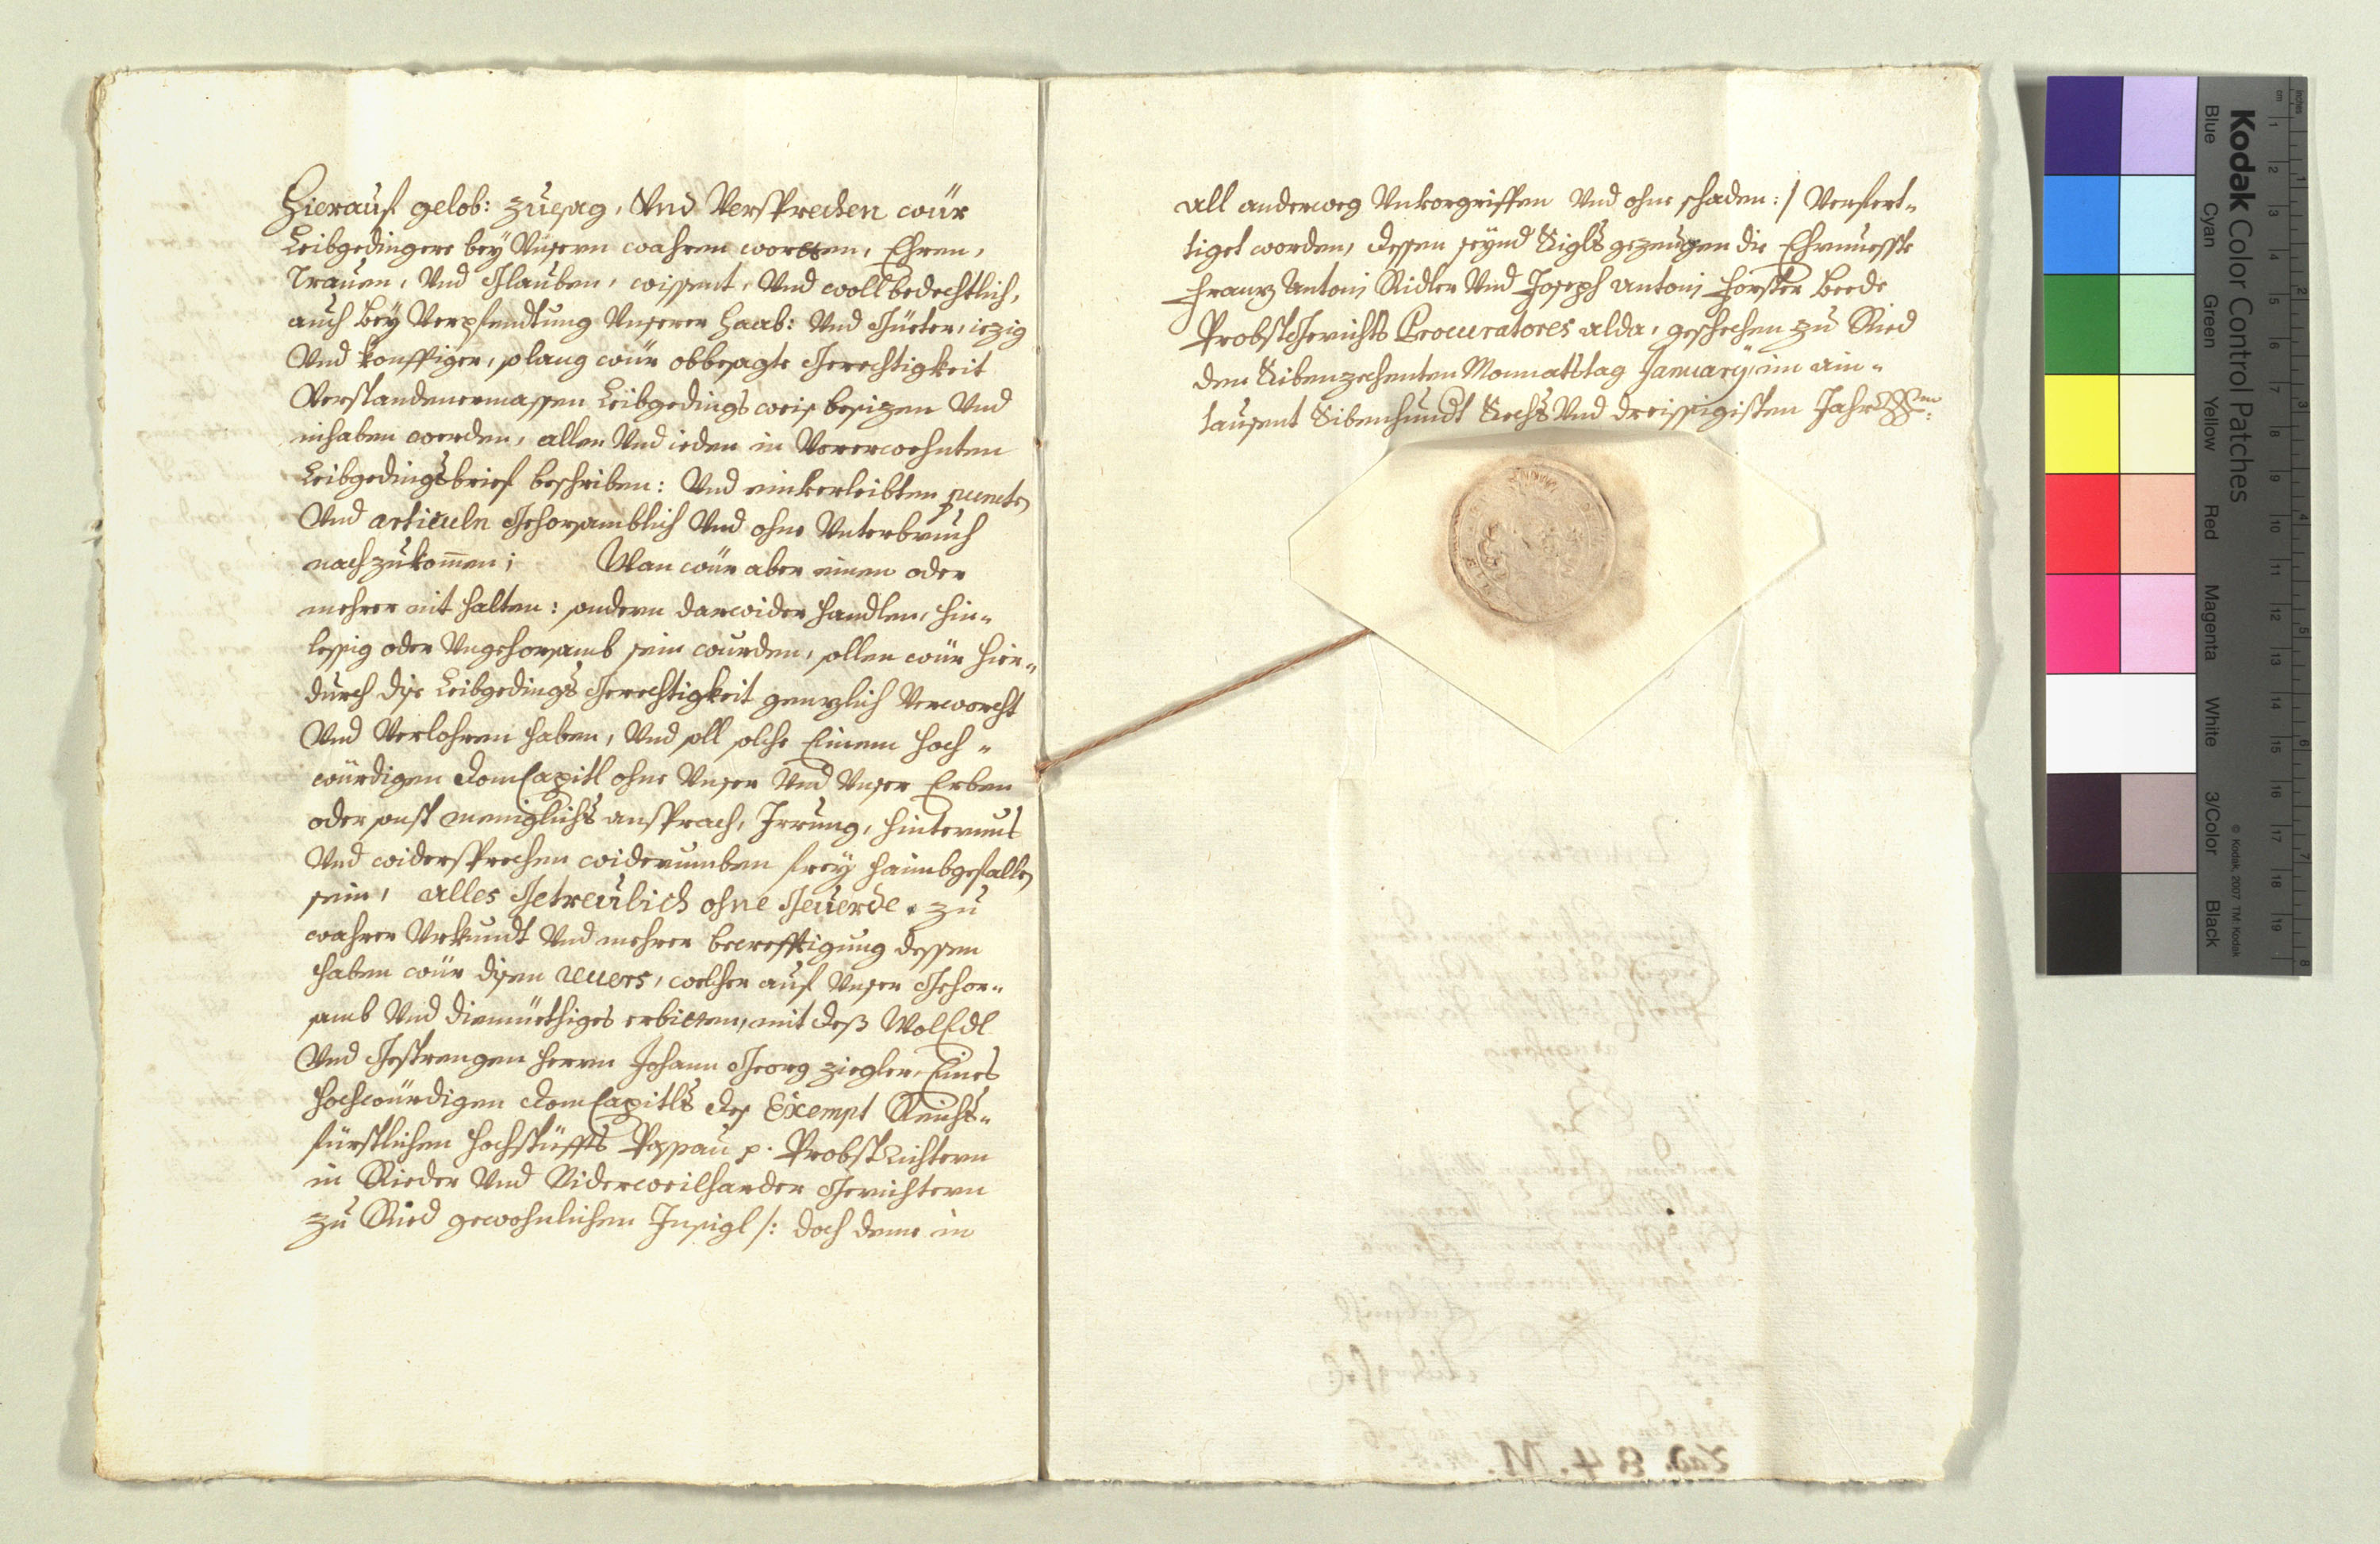 Hierauf gelob: zuesag, Und Versprechen wür
Leibgedingere bey Unsern wahren wortten, Ehren,
Trauen, Und Glauben, wissent, Und wollbedechtlich,
auch bey Verpfendtung Unserer Haab: Und Güeter, iezig
Und konfftiger, solang wür obbesagte Gerechtigkeit
Verstandenermassen Leibgedings weis besizen Und
inhaben werden, allen Und ieden in Vorerwehnten
Leibgedingsbrief beschriben: Und einverleibten puncten
Und articuln Gehorsamblich Und ohne Unterbruch
nachzukom̄en; Wan wür aber einen oder
mehrer nit halten: sondern darwider handlen, hin„
lessig oder Ungehorsamb sein wurden, sollen wür hier„
durch dise Leibgedings Gerechtigkeit genzlich Verworcht
Und Verlohren haben, Und soll solche Einem Hoch„
würdigen DomCapitl ohne Unser Und Unser Erben
oder sonst meniglichs ansprach, Irrung, hinternus
Und widersprechen widerumben frey haimbgefallen
sein, alles Getreulich ohne Geuerde. zu
wahrer Urkundt Und mehrer becrefftigung dessen
haben wür disen reuers, welcher auf Unser Gehor„
samb Und diemüethiges erbitten, mit deß WolEdl
Und Gestrengen Herrn Johann Georg Ziegler, Eines
Hochwürdigen DomCapitls des Exempt Reichs„
fürstlichen Hochstüffts Passau p. ProbstRichtern
in Rieder Und Niderweilharder Gerichtern
zu Ried gewohnlichen Insigl /: doch deme in
all anderweg Unvorgriffen Und ohne schaden :/ Verfert„
tiget worden, dessen seynd Sigls gezeugen die Ehrnuesste
Franz Antonj Ridler Und Joseph Antonj Forster Beede
ProbstGerichts Procuratores alda, geschechen zu Ried
den Sibenzechenten Monnatstag January, im ain„
tausent Sibenhundt Sechs Und dreissigisten Jahr
Lad. 84. M.
Kodak Color Control Patches
Blue Cyan Green Yellow Red Magenta White 3/Color Black
© Kodak, 2007 TM: Kodak
inches 1 2 3 4 5 6 7 8
cm 1 2 3 4 5 6 7 8 9 10 11 12 13 14 15 16 17 18 19